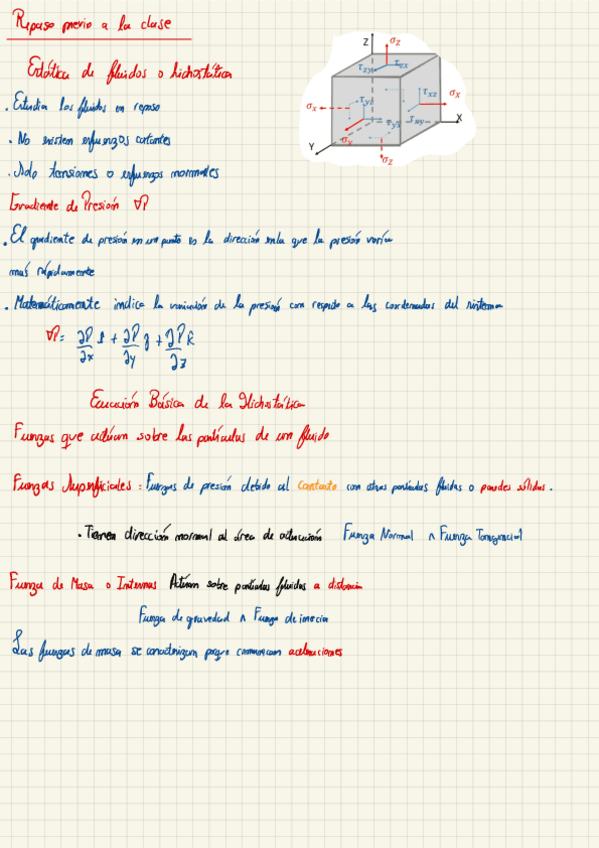 Repaso previo a la clase
Estática de fluidos o hidrostática
. Estudia los fluidos en reposo
. No existen esfuerzos cortantes
. Solo tensiones o esfuerzos normales
Gradiente de Presión ∇P
. El gradiente de presión en un punto es la dirección en la que la presión varía
más rápidamente
. Matemáticamente indica la variación de la presión con respecto a las coordenadas del sistema
∇P = ∂P/∂x î + ∂P/∂y ĵ + ∂P/∂z k̂
Ecuación Básica de la Hidrostática
Fuerzas que actúan sobre las partículas de un fluido
Fuerzas Superficiales : Fuerzas de presión debido al contacto con otras partículas fluidas o paredes sólidas.
. Tienen dirección normal al área de actuación Fuerza Normal ∧ Fuerza Tangencial
Fuerza de Masa o Internas Actúan sobre partículas fluidas a distancia
Fuerza de gravedad ∧ Fuerza de inercia
Las fuerzas de masa se caracterizan porque comunican aceleraciones
Z σz
τzy τzx
σx τyz τxz σx
τyx τxy X
Y σy
σz